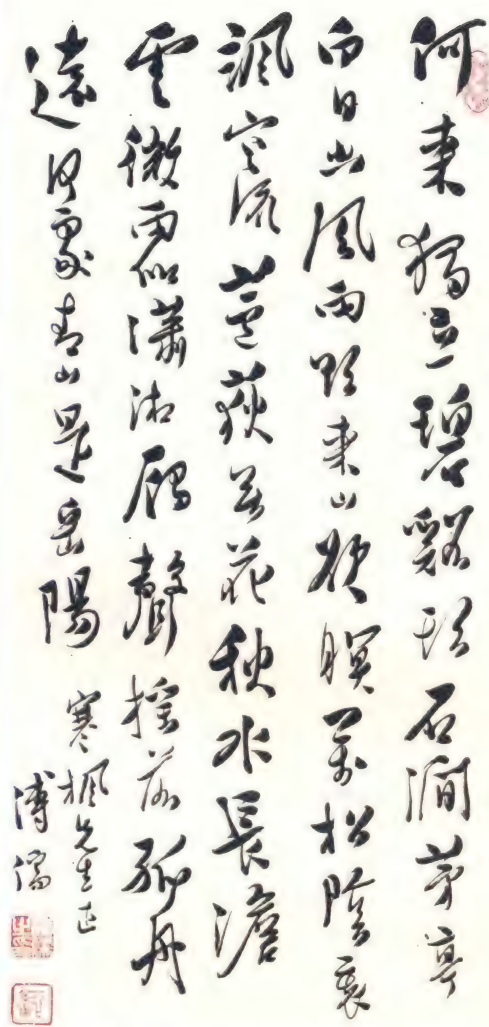 何來獨立碧谿頭石澗茅亭
白日幽風雨欲來山欲暝萬松陰裏
颯寒流蘆荻無花秋水長澹
雲微雨似瀟湘雁聲搖落孤舟
遠何處青山是岳陽
寒楓先生正
溥儒